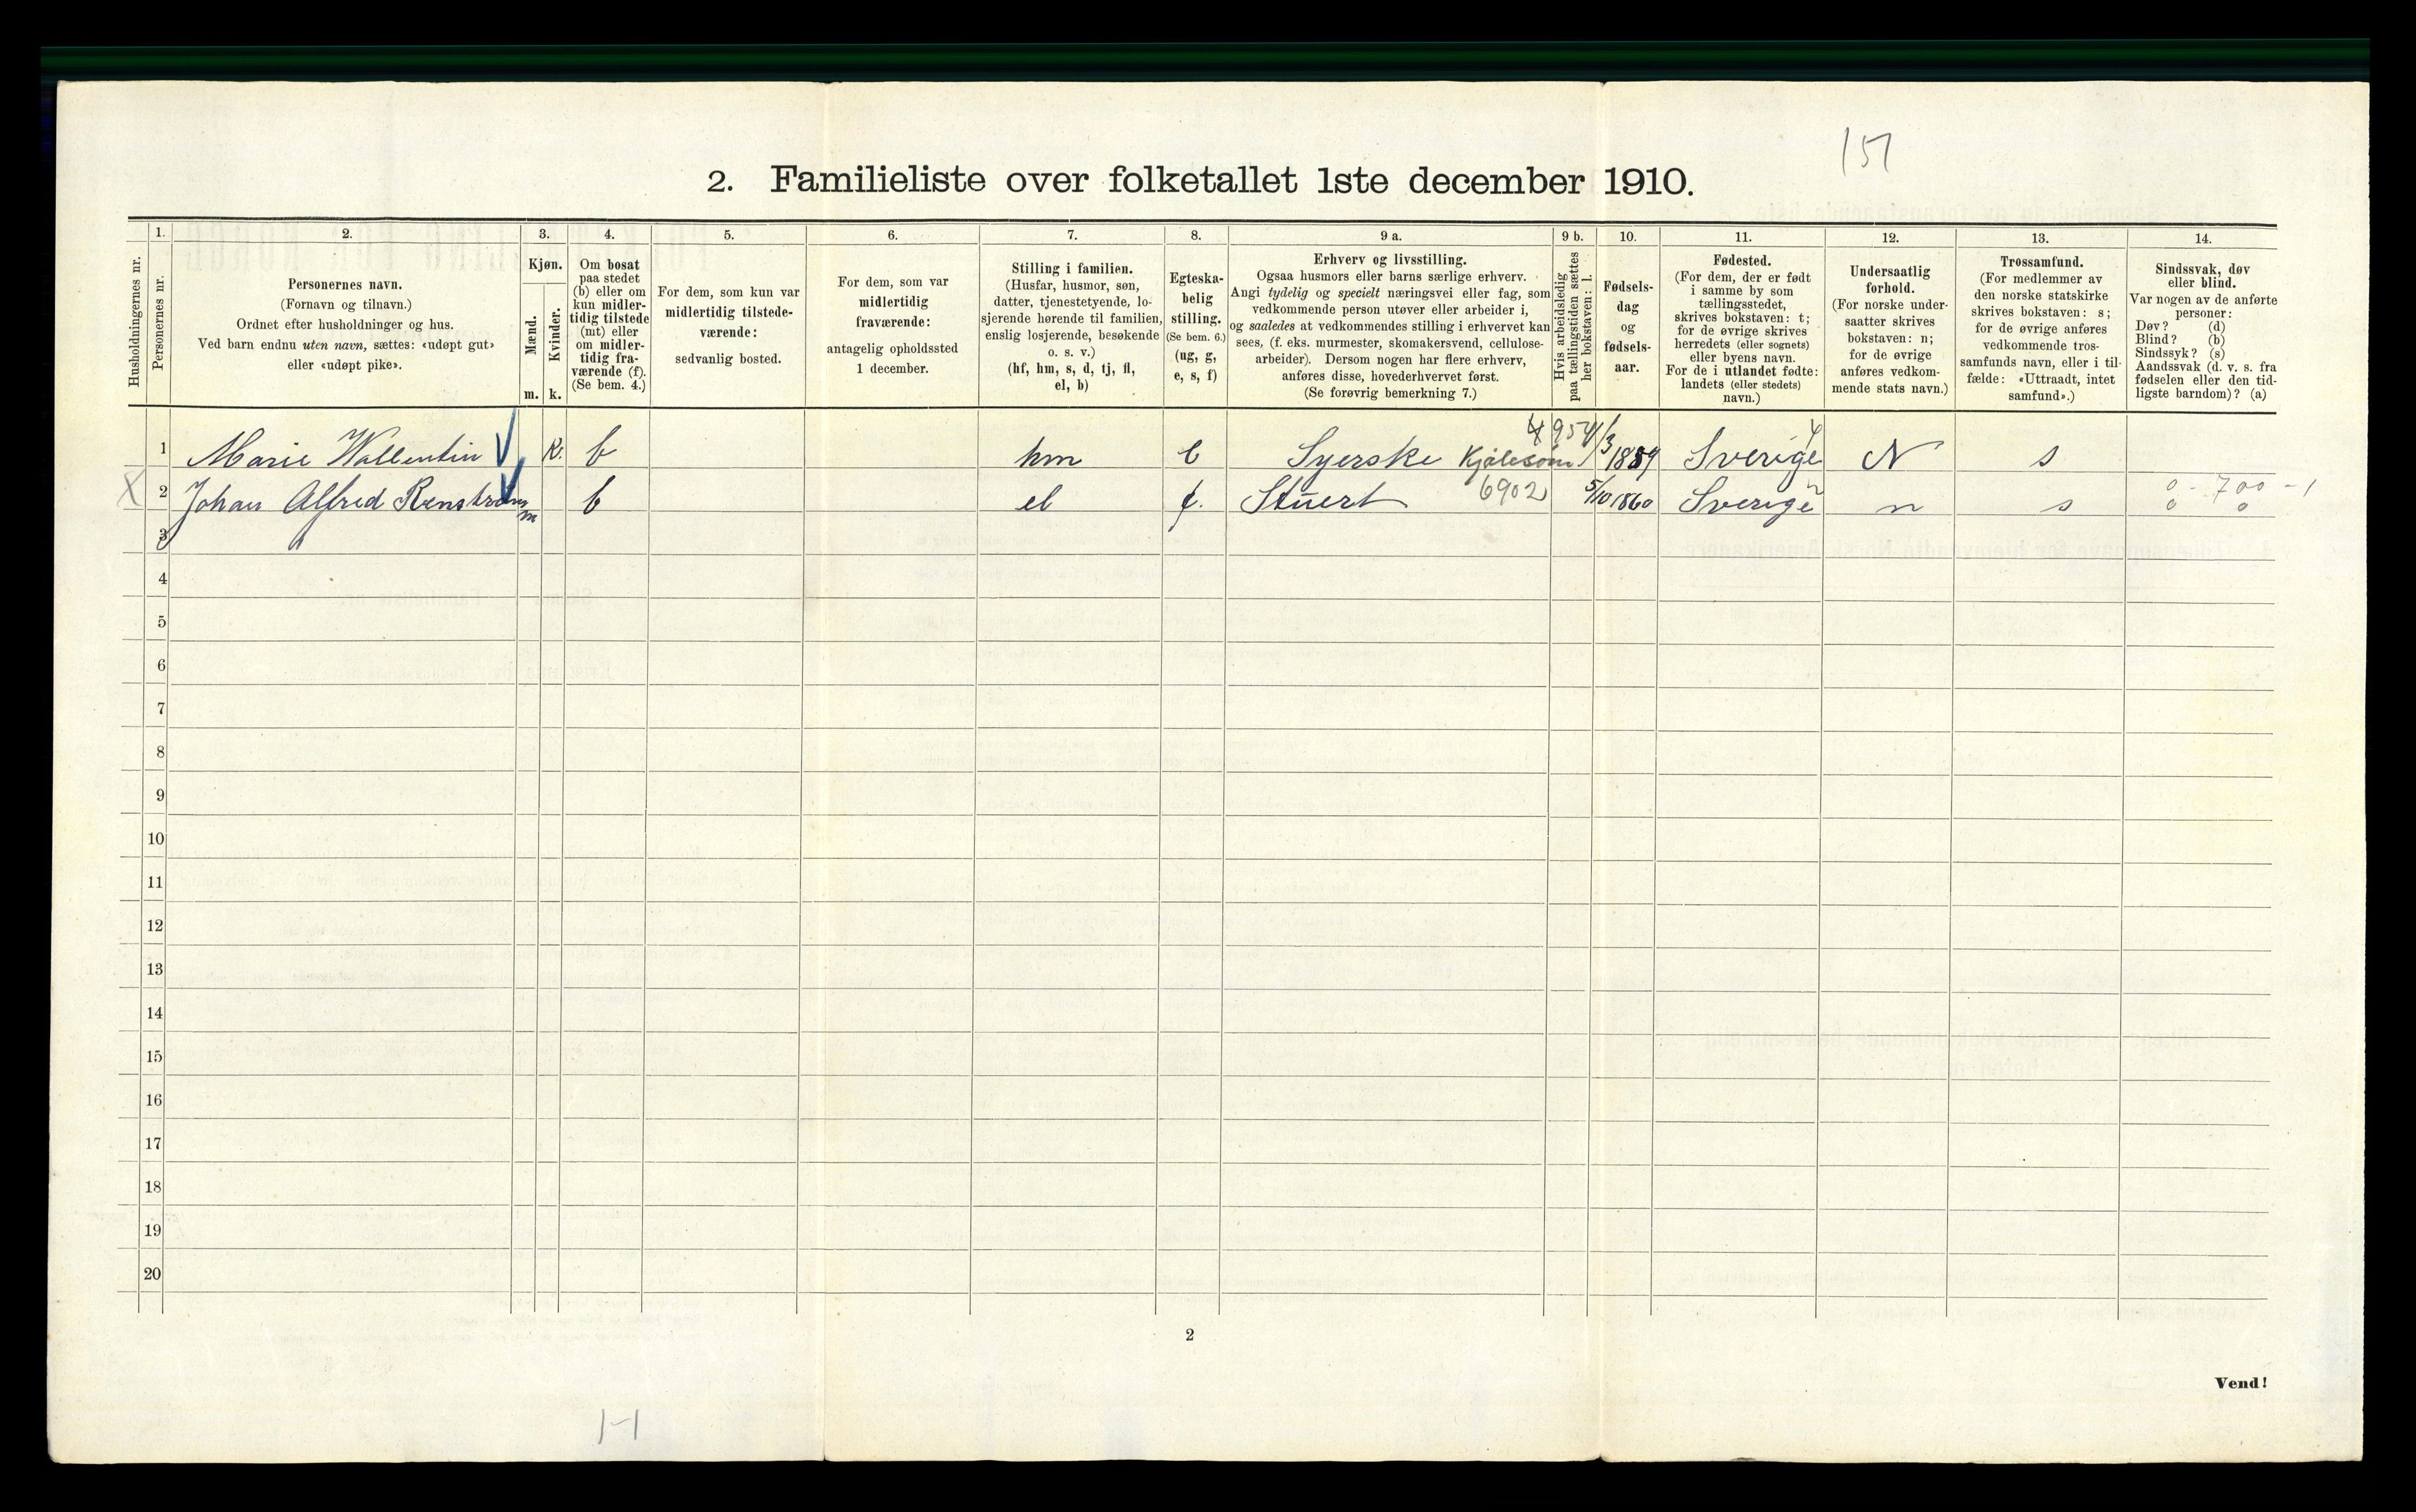 151
2. Familieliste over folketallet 1ste december 1910.
1. 2. 3. 4. 5. 6. 7. 8. 9 a. 9 b. 10. 11. 12. 13. 14.
Husholdningernes nr.
Personernes nr.
Personernes navn.
(Fornavn og tilnavn.)
Ordnet efter husholdninger og hus.
Ved barn endnu uten navn, sættes: «udøpt gut»
eller «udøpt pike».
Kjøn.
Mænd.
Kvinder.
m. k.
Om bosat
paa stedet
(b) eller om
kun midler-
tidig tilstede
(mt) eller
om midler-
tidig fra-
værende (f).
(Se bem. 4.)
For dem, som kun var
midlertidig tilstede-
værende:
sedvanlig bosted.
For dem, som var
midlertidig
fraværende:
antagelig opholdssted
1 december.
Stilling i familien.
(Husfar, husmor, søn,
datter, tjenestetyende, lo-
sjerende hørende til familien,
enslig losjerende, besøkende
o. s. v.)
(hf, hm, s, d, tj, fl,
el, b)
Egteska-
belig
stilling.
(Se bem. 6.)
(ug, g,
e, s, f)
Erhverv og livsstilling.
Ogsaa husmors eller barns særlige erhverv.
Angi tydelig og specielt næringsvei eller fag, som
vedkommende person utøver eller arbeider i,
og saaledes at vedkommendes stilling i erhvervet kan
sees, (f. eks. murmester, skomakersvend, cellulose-
arbeider). Dersom nogen har flere erhverv,
anføres disse, hovederhvervet først.
(Se forøvrig bemerkning 7.)
Hvis arbeidsledig
paa tællingstiden sættes
her bokstaven: l.
Fødsels-
dag
og
fødsels-
aar.
Fødested.
(For dem, der er født
i samme by som
tællingsstedet,
skrives bokstaven: t;
for de øvrige skrives
herredets (eller sognets)
eller byens navn.
For de i utlandet fødte:
landets (eller stedets)
navn.)
Undersaatlig
forhold.
(For norske under-
saatter skrives
bokstaven: n;
for de øvrige
anføres vedkom-
mende stats navn.)
Trossamfund.
(For medlemmer av
den norske statskirke
skrives bokstaven: s;
for de øvrige anføres
vedkommende tros-
samfunds navn, eller i til-
fælde: «Uttraadt, intet
samfund».)
Sindssvak, døv
eller blind.
Var nogen av de anførte
personer:
Døv? (d)
Blind? (b)
Sindssyk? (s)
Aandssvak (d. v. s. fra
fødselen eller den tid-
ligste barndom)? (a)
1 Marie Wallentin k. b hm e Syerske Kjolesøm 1859 Sverige N s
X 2 Johan Alfred Renström m b el Stuert 6902 5/10 1860 Sverige n s 0 - 700 - 1
0 0
3
4
5
6
7
8
9
10
11
12
13
14
15
16
17
18
19
20
2
Vend!
1-1